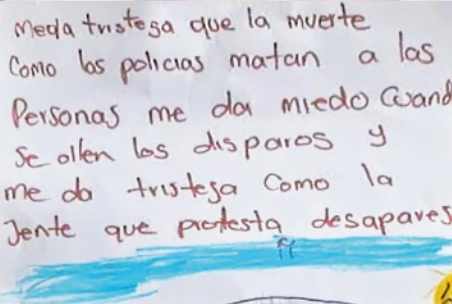 Meda tristesa que la muerte
Como los policias matan a las
Personas me da miedo Cuand
Se ollen los disparos y
me da tristesa Como la
Jente que protesta desapares